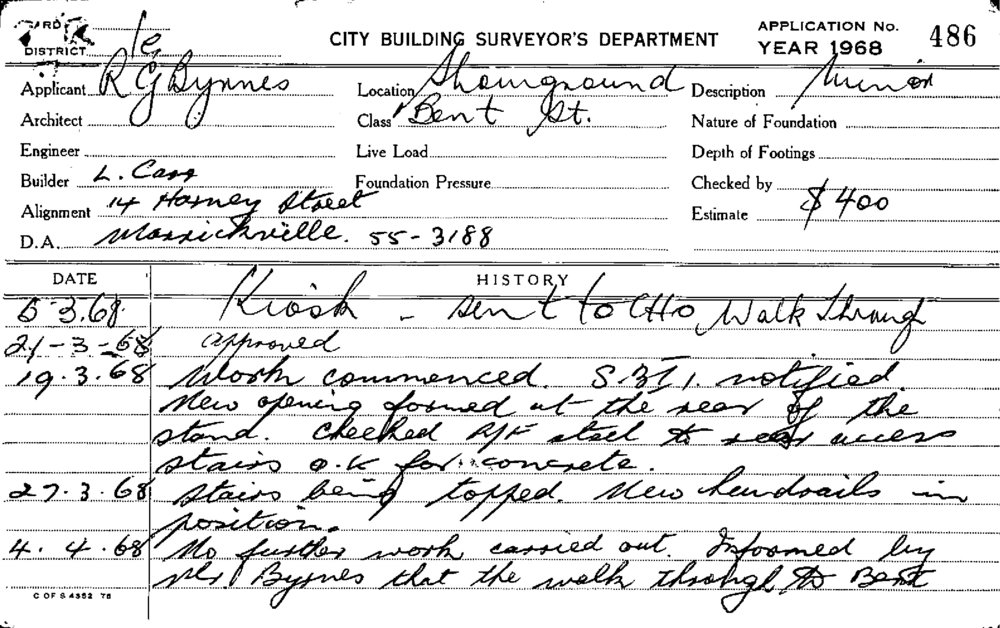 CITY BUILDING SURVEYOR'S DEPARTMENT
APPLICATION No. 486
YEAR 1968
DISTRICT
Applicant R G Byrnes
Location Showground
Description Minor
Architect
Class Bent St.
Nature of Foundation
Engineer
Live Load
Depth of Footings
Builder L. Carr
Foundation Pressure
Checked by
Alignment 14 Harney Street
Estimate $400
D.A. Marrickville. 55-3188
DATE HISTORY
5-3.68. Kiosk - sent to CHO Walk through
21-3-68 approved
19.3.68 Work commenced. notified.
New opening formed at the rear of the
stand. Checked R/F steel to rear access
stairs O.K for concrete.
27.3.68 Stairs being topped. New handrails in
position.
4.4.68 No further work carried out. Informed by
Mr Byrnes that the walk through to Bent
C OF S 4352 78